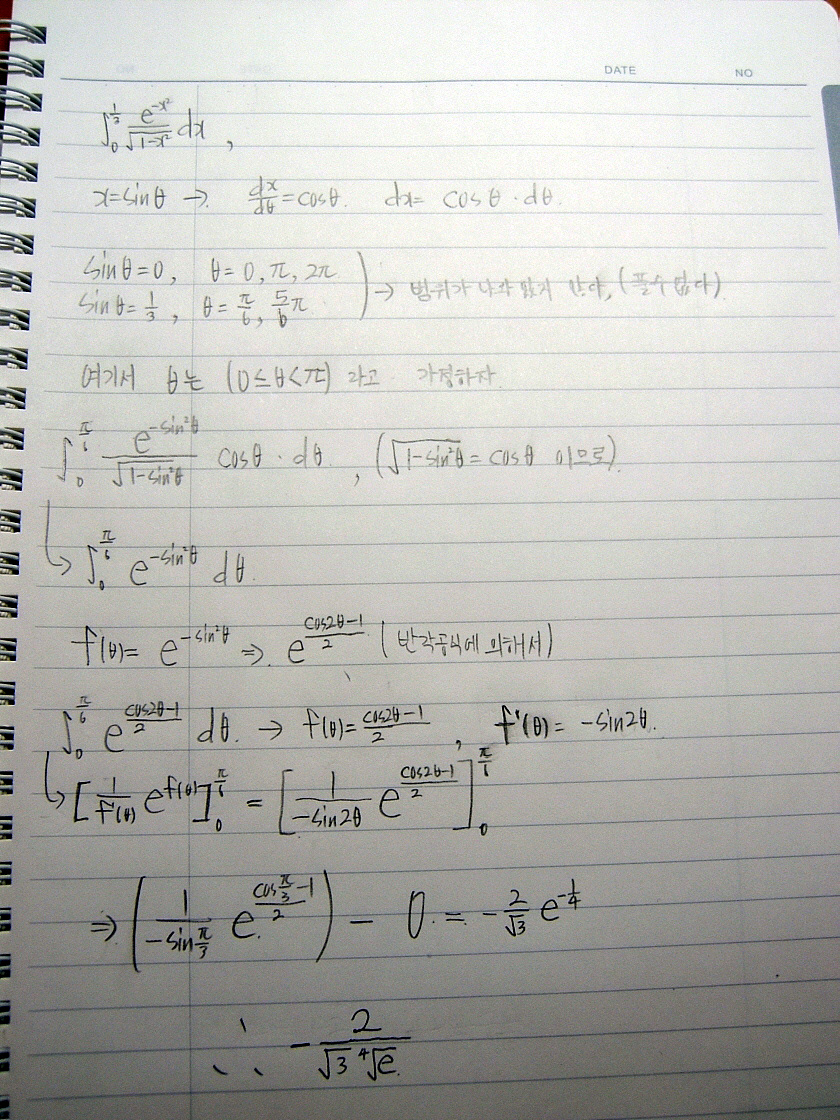 DATE NO
∫₀^(1/2) e^(-x²)/√(1-x²) dx ,
x=sinθ → dx/dθ=cosθ. dx= cosθ · dθ.
sinθ=0, θ=0, π, 2π
sinθ=1/3, θ=π/6, 5/6 π → 범위가 나와 있지 않다, (풀수없다).
여기서 θ는 (0≤θ<π) 라고 가정하자.
∫₀^(π/6) e^(-sin²θ)/√(1-sin²θ) cosθ · dθ. , (√(1-sin²θ) = cosθ 이므로).
↳ ∫₀^(π/6) e^(-sin²θ) dθ.
f(θ)= e^(-sin²θ) ⇒ e^((cos2θ-1)/2) (반각공식에 의해서)
∫₀^(π/6) e^((cos2θ-1)/2) dθ. → f(θ)=(cos2θ-1)/2 , f'(θ)= -sin2θ.
↳ [1/f'(θ) e^(f(θ))]₀^(π/6) = [1/(-sin2θ) e^((cos2θ-1)/2)]₀^(π/6)
⇒ (1/(-sin π/3) e^((cos π/3 -1)/2)) - 0. = -2/√3 e^(-1/4)
∴ - 2/(√3 ⁴√e)